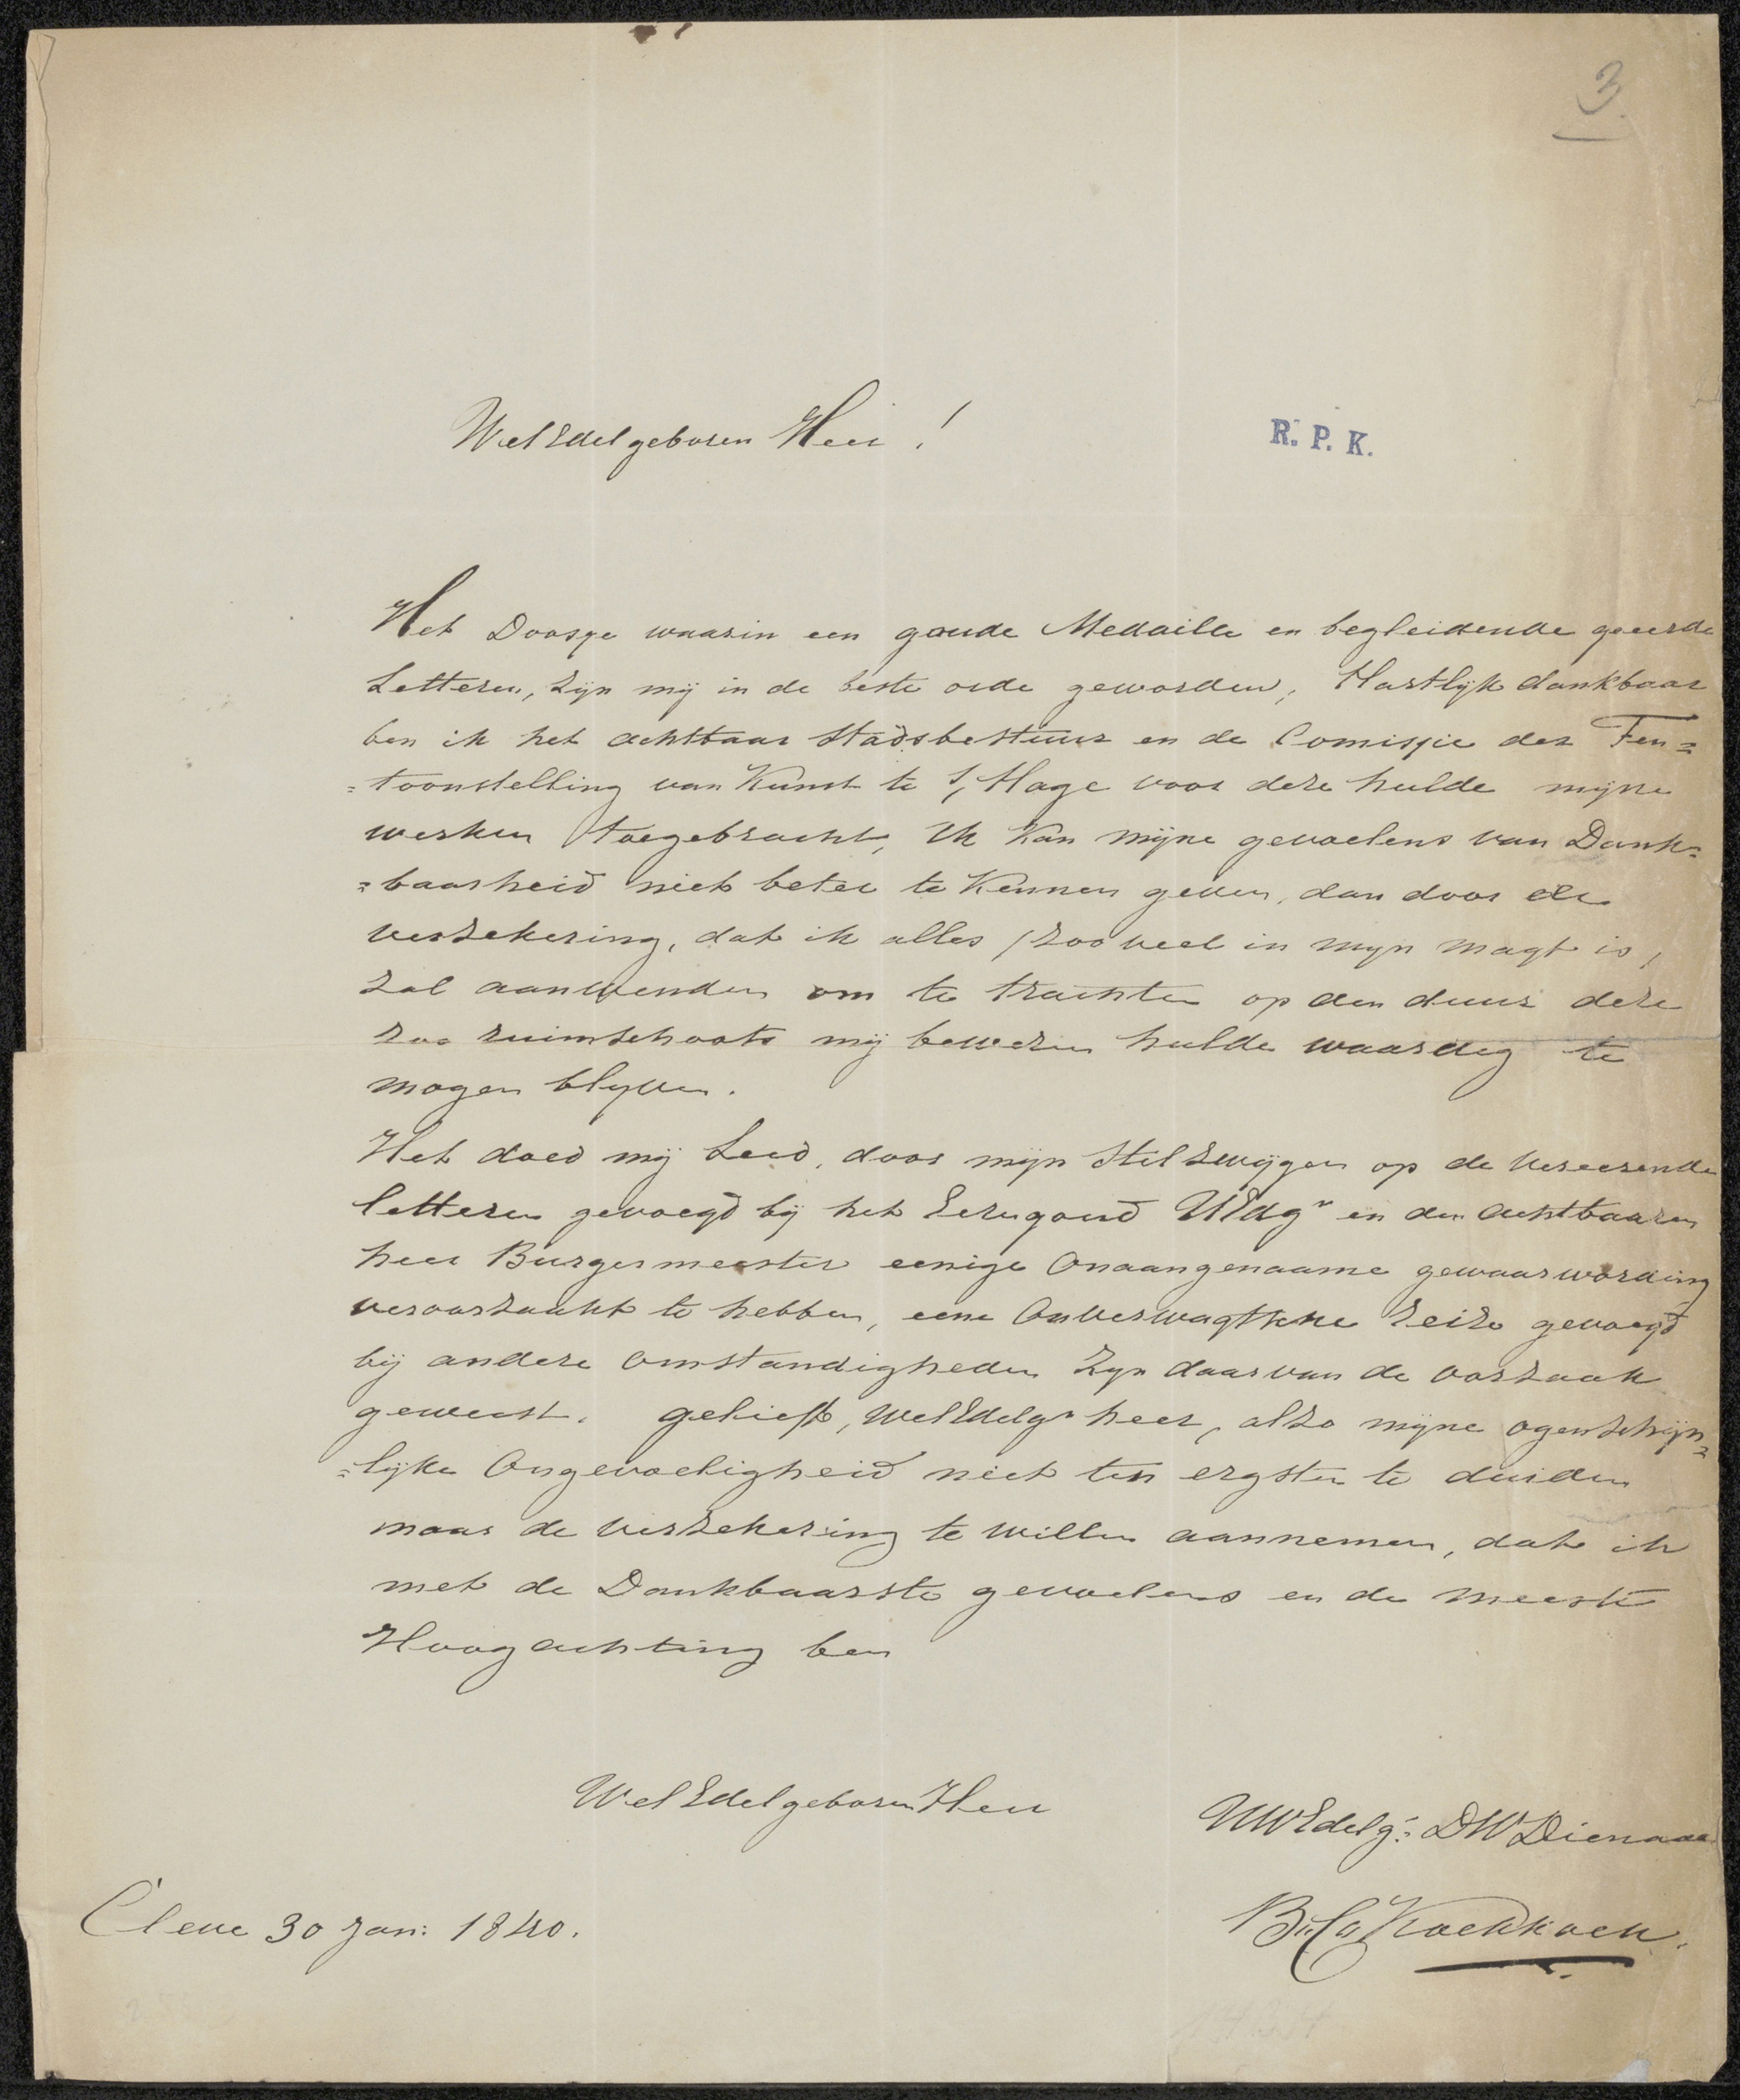 3
WelEdelgeboren Heer !
R. P. K.
Het Doosje waarin een goude Medaille en begleidende geeerde
Letteren, zijn mij in de beste orde geworden, Hartlijk dankbaar
ben ik het achtbaar Stadsbestuur en de Comissie der Ten=
=toonstelling van Kunst te s'Hage voor deze hulde mijne
werken toegebracht, Ik kan mijne gevoelens van Dank=
=baarheid niet beter te kennen geven, dan door de
verzekering, dat ik alles / zoo veel in mijn magt is /
zal aanwenden om te trachten op den duur deze
zoo ruimschoots mij bewezen hulde waardig te
mogen blyven.
Het doed mij Leed, door mijn Stilzwijgen op de vereerende
letteren gevoegd bij het Eeregoud UEdgn en den achtbaaren
heer Burgermeester eenige Onaangenaame gewaarwording
veroorzaakt te hebben, eene Onverwagtsche Reize gevoegd
bij andere omstandigheden zyn daarvan de oorzaak
geweest. gelieft, WelEdelgn heer, alzo mijne ogenschijn=
=lijke Ongevoeligheid niet ten ergsten te duiden
maar de verzekering te willen aannemen, dat ik
met de Dankbaarste gevoelens en de meeste
Hoogachting ben
WelEdelgeboren Heer
UWEdelg: DWDienaar
B.C. Koekkoek.
Cleve 30 Jan: 1840.